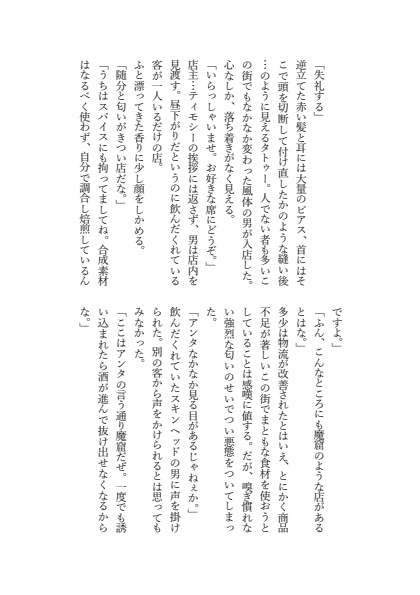 「失礼する」
逆立てた赤い髪と耳には大量のピアス、首にはそ
こで頭を切断して付け直したかのような縫い後
…のように見えるタトゥー。人でない者も多いこ
の街でもなかなか変わった風体の男が入店した。
心なしか、落ち着きがなく見える。
「いらっしゃいませ。お好きな席にどうぞ。」
店主…ティモシーの挨拶には返さず、男は店内を
見渡す。昼下がりだというのに飲んだくれている
客が一人いるだけの店。
ふと漂ってきた香りに少し顔をしかめる。
「随分と匂いがきつい店だな。」
「うちはスパイスにも拘ってましてね。合成素材
はなるべく使わず、自分で調合し焙煎しているん
ですよ。」
「ふん、こんなところにも魔窟のような店がある
とはな。」
多少は物流が改善されたとはいえ、とにかく商品
不足が著しいこの街でまともな食材を使おうと
していることは感嘆に値する。だが、嗅ぎ慣れな
い強烈な匂いのせいでつい悪態をついてしまっ
た。
「アンタなかなか見る目があるじゃねぇか。」
飲んだくれていたスキンヘッドの男に声を掛け
られた。別の客から声をかけられるとは思っても
みなかった。
「ここはアンタの言う通り魔窟だぜ。一度でも誘
い込まれたら酒が進んで抜け出せなくなるから
な。」